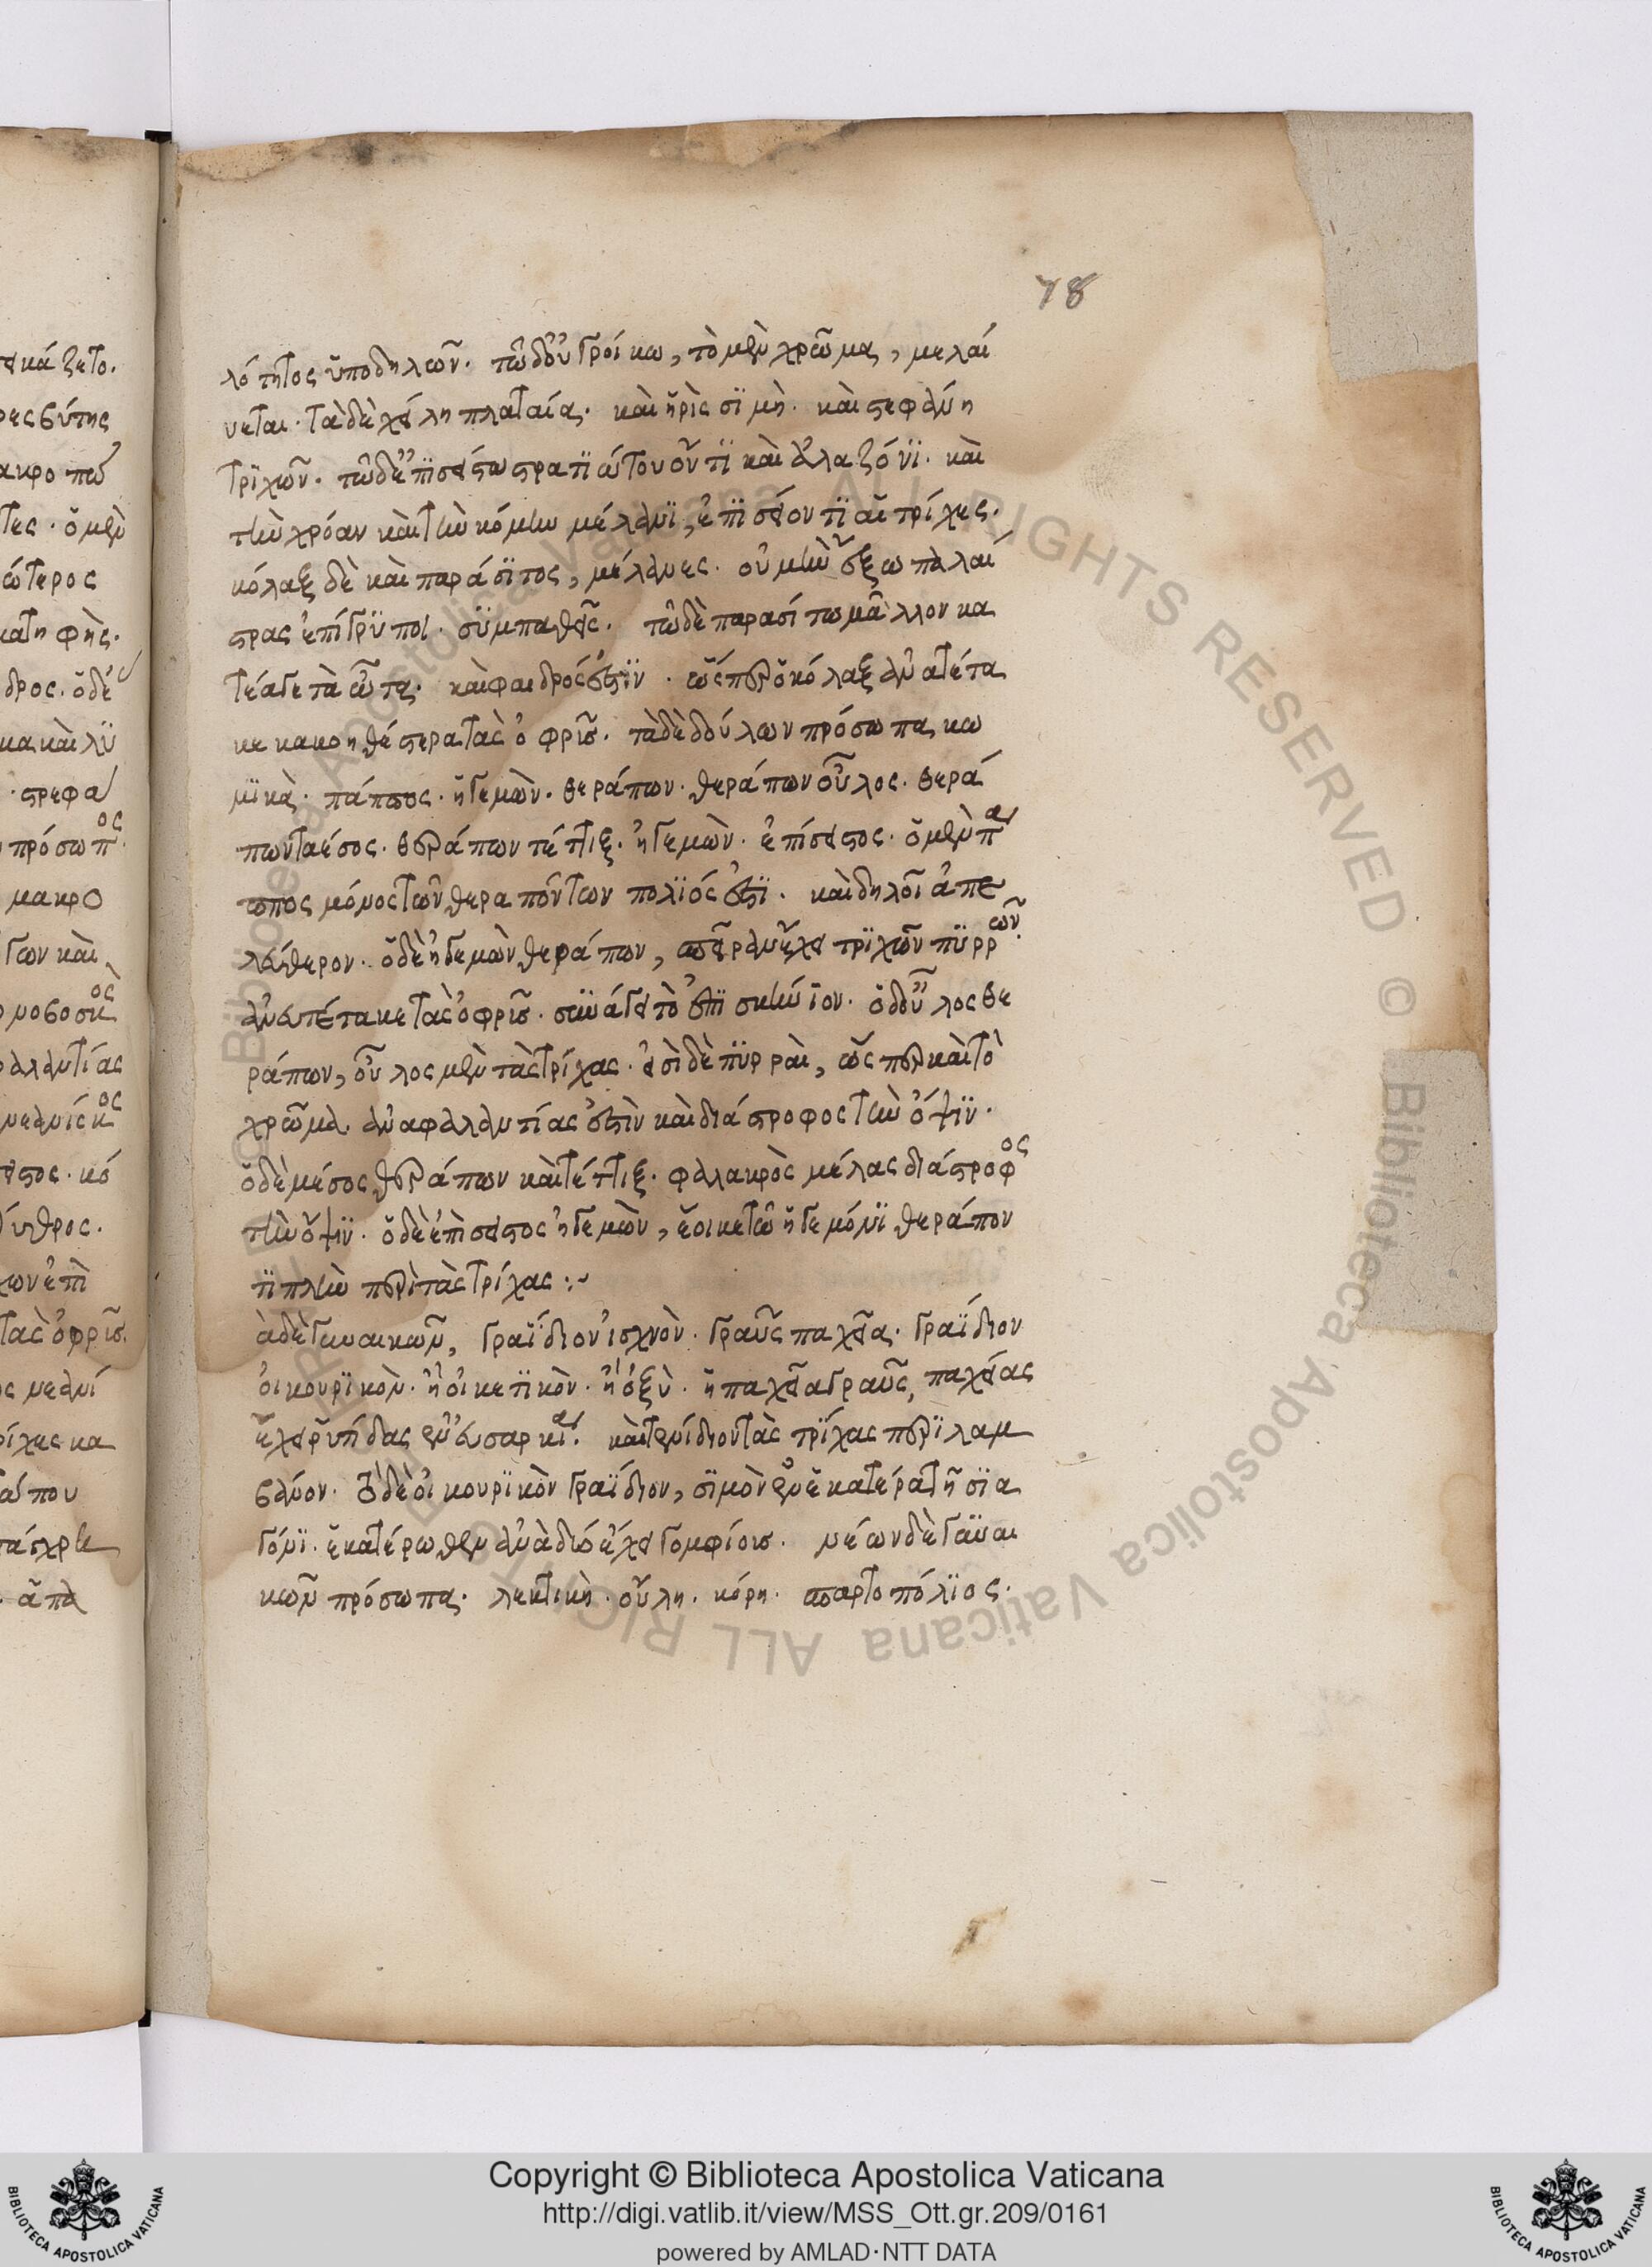 78
λότητος ὑποδηλῶν. τῶ δ' ἀγροίκω, τὸ μὲν χρῶμα, μελαί
νεται. τὰ δὲ χείλη πλαταία. καὶ ἡ ρὶς σιμὴ. καὶ στεφάνη
τριχῶν. τῶ δ' ἐπισείστω στρατιώτου ὄντι καὶ ἀλαζόνι. καὶ
τὴν χρόαν καὶ τὴν κόμην μέλανι, ἐπισείονται αἱ τρίχες.
κόλαξ δὲ καὶ παράσιτος, μέλανες. οὐ μὴν ἔξω παλαί
στρας ἐπίγρυποι. συμπαθεῖς. τῶ δὲ παρασίτω μᾶλλον κα
τέαγε τὰ ὦτα. καὶ φαιδρός ἐστιν. ὥσπερ ὁ κόλαξ ἀνατέτα
κε κακοηθέστερα τὰς ὀφρῦς. τὰ δὲ δούλων πρόσωπα κω
μικὰ. πάππος. ἡγεμὼν. θεράπων. θεράπων οὖλος. θερά
πων μέσος. θεράπων τέττιξ. ἡγεμὼν. ἐπίσειστος. ὁ μὲν πά
ππος μόνος τῶν θεραπόντων πολιός ἐστι. καὶ δηλοῖ ἀπε
λεύθερον. ὁ δὲ ἡγεμὼν θεράπων, σπεῖραν ἔχει τριχῶν πυρρῶν.
ἀνατέτακε τὰς ὀφρῦς. συνάγει τὸ ἐπισκύνιον. ὁ δ' οὖλος θε
ράπων, οὖλος μὲν τὰς τρίχας. εἰσὶ δὲ πυρραὶ, ὥσπερ καὶ τὸ
χρῶμα. ἀναφαλαντίας ἐστὶν καὶ διάστροφος τὴν ὄψιν.
ὁ δὲ μέσος θεράπων καὶ τέττιξ. φαλακρὸς μέλας διάστροφος
τὴν ὄψιν. ὁ δὲ ἐπίσειστος ἡγεμὼν, ἔοικε τῶ ἡγεμόνι θεράπον
τι πλὴν περὶ τὰς τρίχας:~
ἃ δὲ γυναικῶν, γραΐδιον ἰσχνὸν. γραῦς παχεῖα. γραΐδιον
οἰκουρικὸν. ἢ οἰκετικὸν. ἢ ὀξὺ. ἡ παχεῖα γραῦς, παχείας
ἔχει ρυτίδας ἐν εὐσαρκία. καὶ ταινίδιον τὰς τρίχας περιλαμ
βάνον. τὸ δὲ οἰκουρικὸν γραΐδιον, σιμὸν ἐν ἑκατέρα τῇ σια
γόνι. ἑκατέρωθεν ἀνὰ δύο ἔχει γομφίους. νέων δὲ γυναι
κῶν πρόσωπα. λεκτικὴ. οὔλη. κόρη. σπαρτοπόλιος.
Copyright © Biblioteca Apostolica Vaticana
http://digi.vatlib.it/view/MSS_Ott.gr.209/0161
powered by AMLAD·NTT DATA